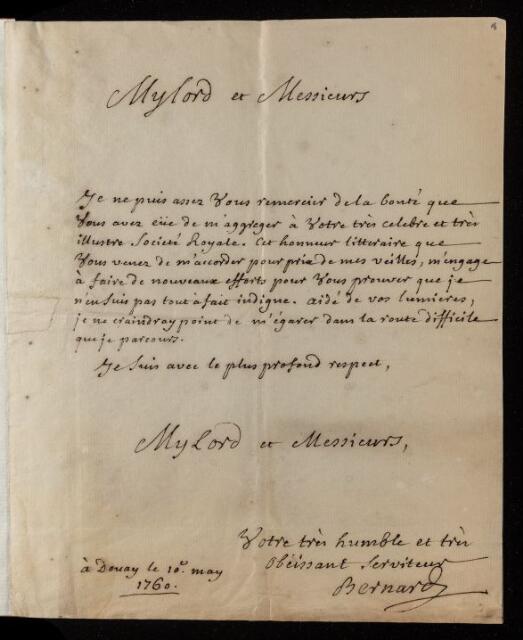 Mylord et Messieurs
Je ne puis assez Vous remercier de la bonté que
Vous avez eüe de m'aggreger à Votre très celebre et très
illustre Société Royale. Cet honneur litteraire que
Vous venez de m'accorder pour prix de mes veilles, m'engage
à faire de nouveaux efforts pour Vous prouver que je
n'en suis pas tout à fait indigne. aidé de vos lumieres,
je ne craindray point de m'égarer dans la route difficile
que je parcours.
Je suis avec le plus profond respect,
MyLord et Messieurs,
Votre très humble et très
Obéissant Serviteur
Bernard
à Douay le 10. may
1760.